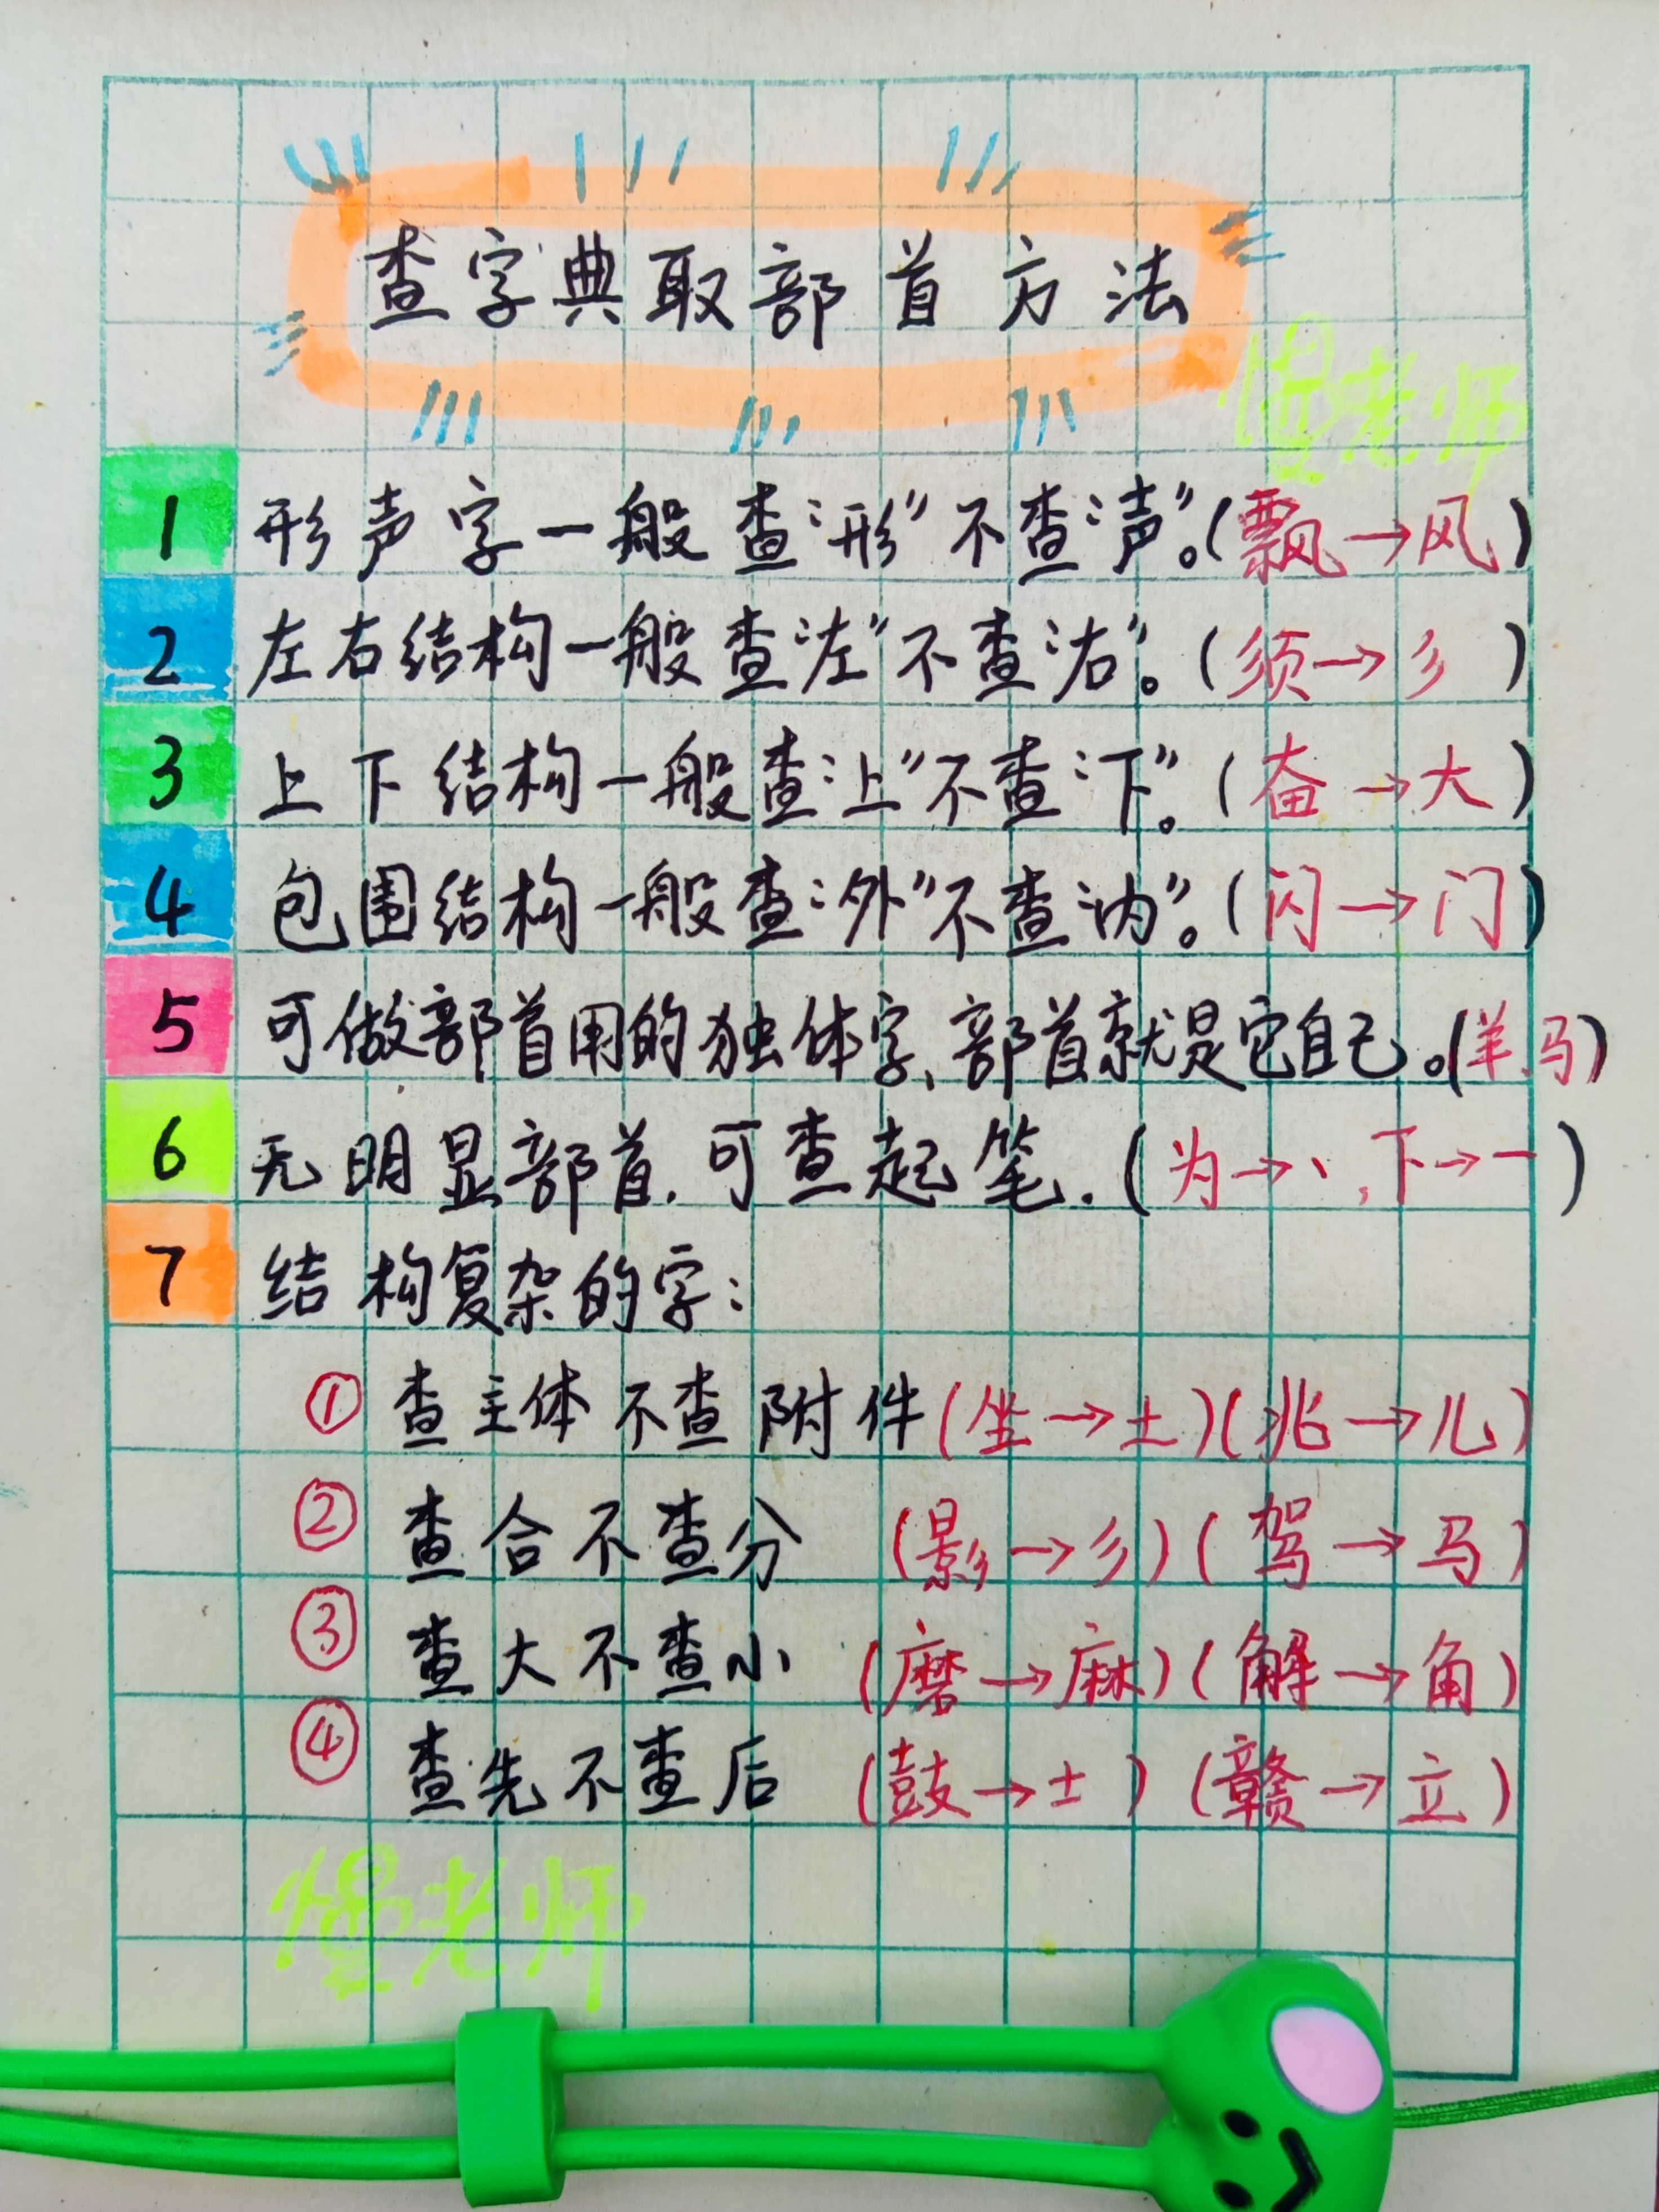 查字典取部首方法
慢老师
1 形声字一般查“形”不查“声”。(飘→风)
2 左右结构一般查“左”不查“右”。(须→彡)
3 上下结构一般查“上”不查“下”。(奋→大)
4 包围结构一般查“外”不查“内”。(闪→门)
5 可做部首用的独体字、部首就是它自己。(羊、马)
6 无明显部首.可查起笔.(为→丶,下→一)
7 结构复杂的字:
① 查主体不查附件(坐→土)(兆→儿)
② 查合不查分 (影→彡)(驾→马)
③ 查大不查小 (磨→麻)(解→角)
④ 查先不查后 (鼓→士)(赣→立)
慢老师